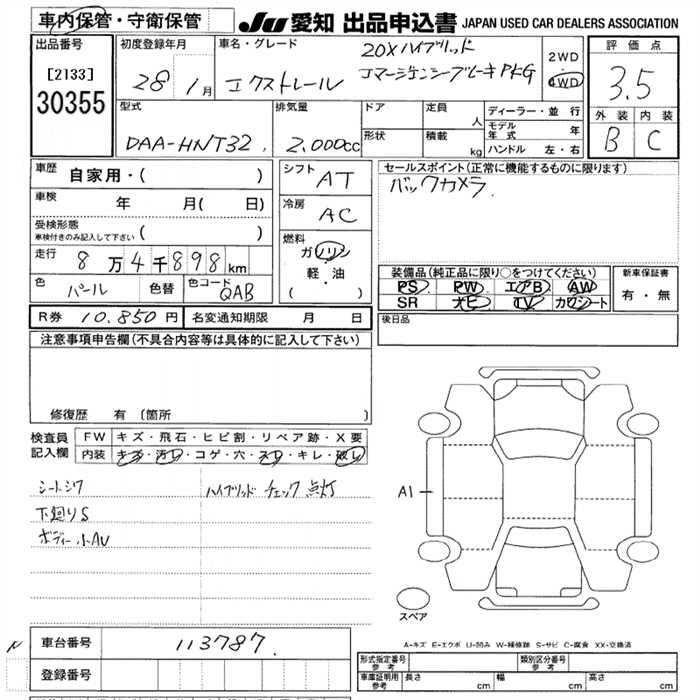 車内保管・守衛保管
JU 愛知 出品申込書 JAPAN USED CAR DEALERS ASSOCIATION
出品番号
[2133]
30355
初度登録年月
28 1月
車名・グレード
エクストレール
20Xハイブリッド
エマージェンシーブレーキPKG
2WD
4WD
評価点
3.5
外装 内装
B C
型式
DAA-HNT32
排気量
2,000cc
ドア
形状
定員
人
積載
kg
ディーラー・並行
モデル年式 年
ハンドル 左・右
車歴 自家用・( )
車検 年 月( 日)
受検形態
車検付きのみ記入して下さい ( )
走行 8万4千898km
色 パール 色替 色コード QAB
シフト AT
冷房 AC
燃料
ガソリン
軽・油
( )
セールスポイント(正常に機能するものに限ります)
バックカメラ
装備品(純正品に限り○をつけてください)
PS PW エアB AW
SR ナビ TV カワシート
新車保証書
有・無
R券 10,850円 名変通知期限 月 日
後日品
注意事項申告欄(不具合内容等は具体的に記入して下さい)
修復歴 有 (箇所 )
検査員記入欄
FW キズ・飛石・ヒビ割・リペア跡・X要
内装 キズ・汚れ・コゲ・穴・スレ・キレ・破レ
シートシワ ハイブリッド チェック 点灯
下廻りS
ボディー小AU
A1
スペア
A-キズ E-エクボ U-凹み W-補修跡 S-サビ C-腐食 XX-交換済
N 車台番号 113787
登録番号
形式指定番号 参考
類別区分番号 参考
車庫証明用 参考 長さ cm 幅 cm 高さ cm